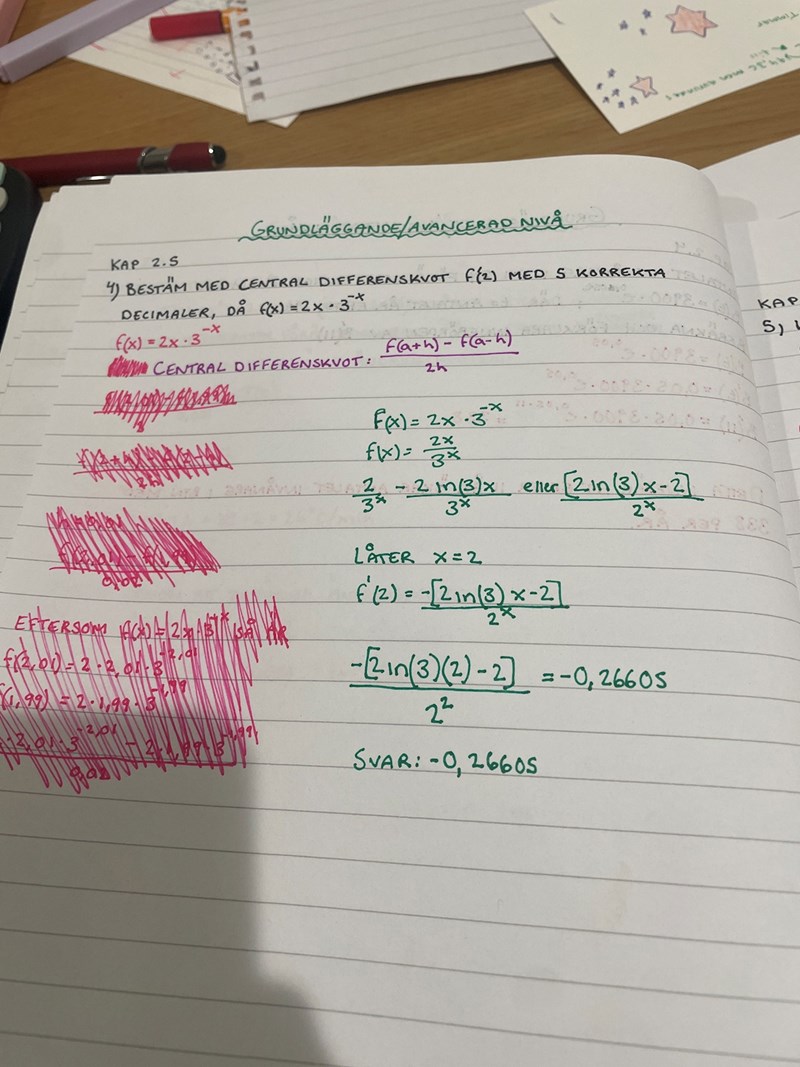 GRUNDLÄGGANDE/AVANCERAD NIVÅ
KAP 2.5
4) BESTÄM MED CENTRAL DIFFERENSKVOT f'(2) MED 5 KORREKTA
DECIMALER, DÅ f(x) = 2x · 3^-x
f(x) = 2x · 3^-x
CENTRAL DIFFERENSKVOT: f(a+h) - f(a-h) / 2h
f(x) = 2x · 3^-x
f(x) = 2x / 3^x
2 / 3^x - 2 ln(3)x / 3^x eller [2 ln(3)x-2] / 2^x
LÅTER x = 2
f'(2) = -[2 ln(3)x-2] / 2^x
-[2 ln(3)(2) - 2] / 2^2 = -0,26605
SVAR: -0,26605
EFTERSOM f(x) = 2x · 3^-x SÅ ÄR
f(2,01) = 2 · 2,01 · 3^-2,01
(1,99) = 2 · 1,99 · 3^-1,99
2,01 · 3^-2,01 - 2 · 1,99 · 3^-1,99 / 0,02
KAP
5,